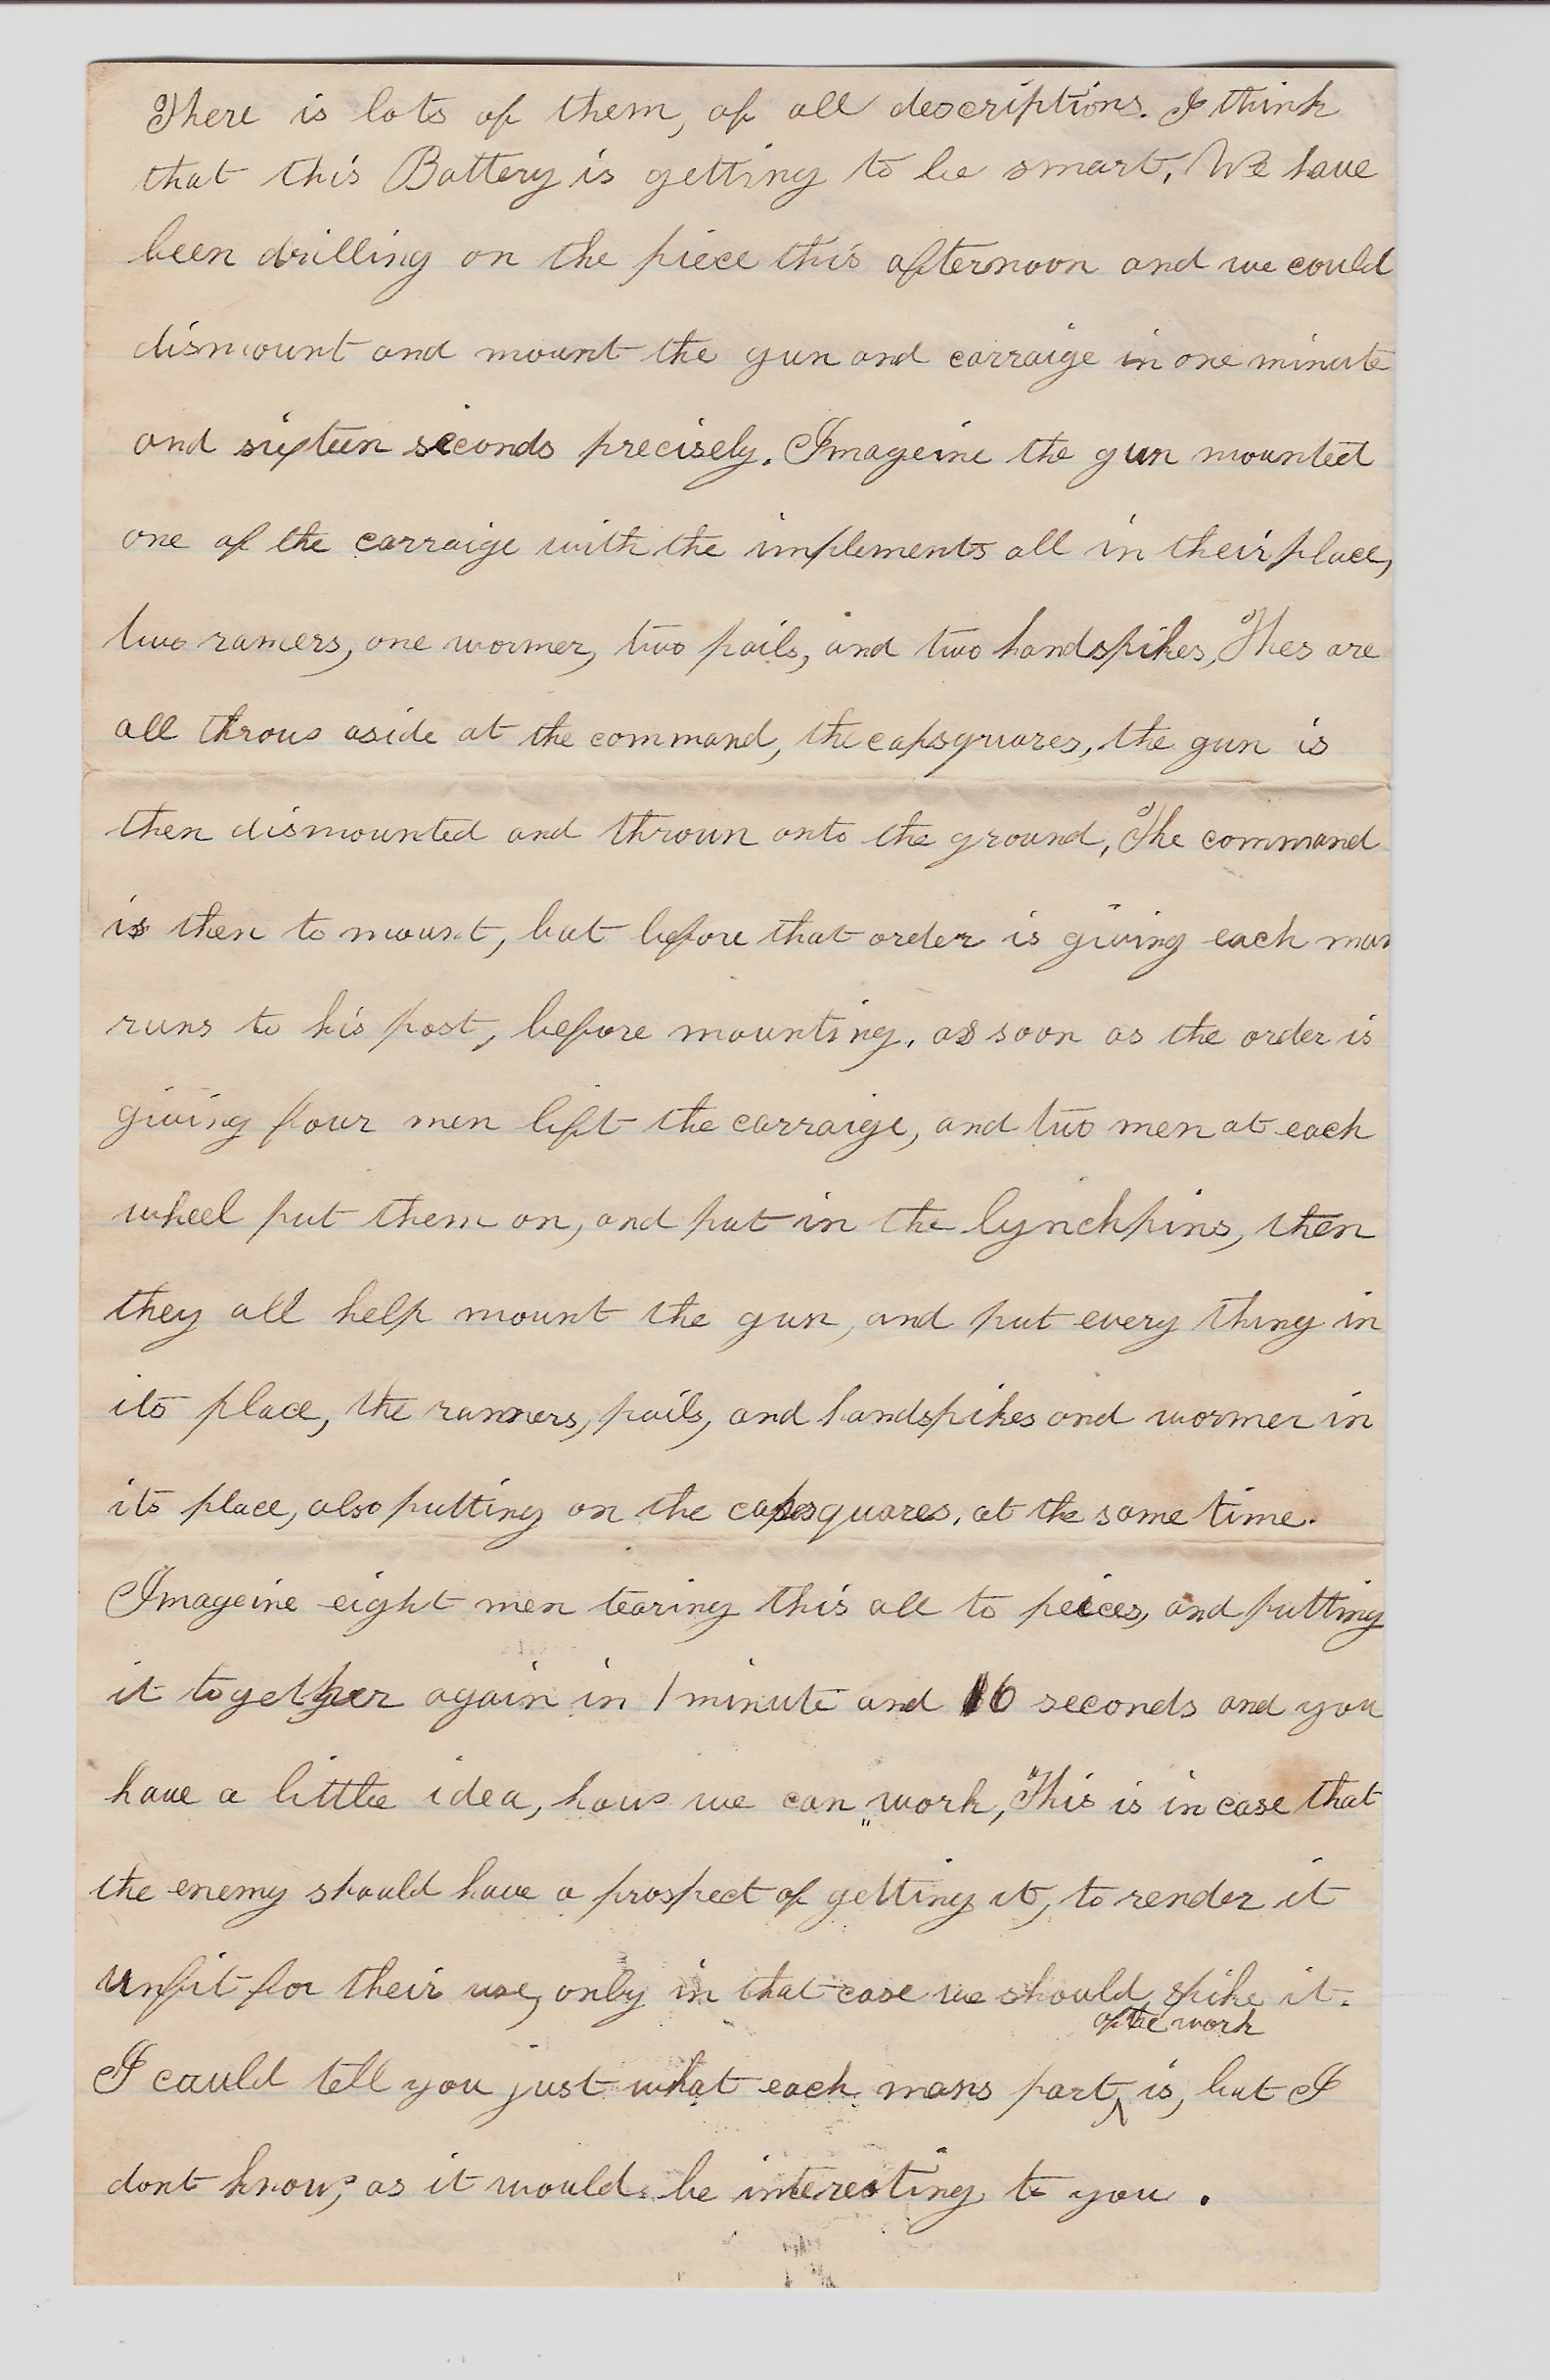 There is lots of them, of all descriptions. I think
that this Battery is getting to be smart, We have
been drilling on the piece this afternoon and we could
dismount and mount the gun and carraige in one minute
and sixteen seconds precisely. Imageine the gun mounted
one of the carraige with the implements all in their place,
two ramers, one wormer, two pails, and two handspikes, Thes are
all throws aside at the command, the capsquares, the gun is
then dismounted and thrown onto the ground, The command
is then to mount, but before that order is giving each man
runs to his post, before mounting, as soon as the order is
giving four men lift the carraige, and two men at each
wheel put them on, and put in the lynchpins, then
they all help mount the gun, and put every thing in
its place, the rammers, pails, and handspikes and wormer in
its place, also putting on the capsquares, at the same time.
Imageine eight men tearing this all to peices, and putting
it together again in 1 minute and 16 seconds and you
have a little idea, how we can „work, This is in case that
the enemy should have a prospect of getting it, to render it
unfit for their use, only in that case we should spike it.
of the work
I could tell you just what each mans part ^ is, but I
dont know, as it would be interesting to you.